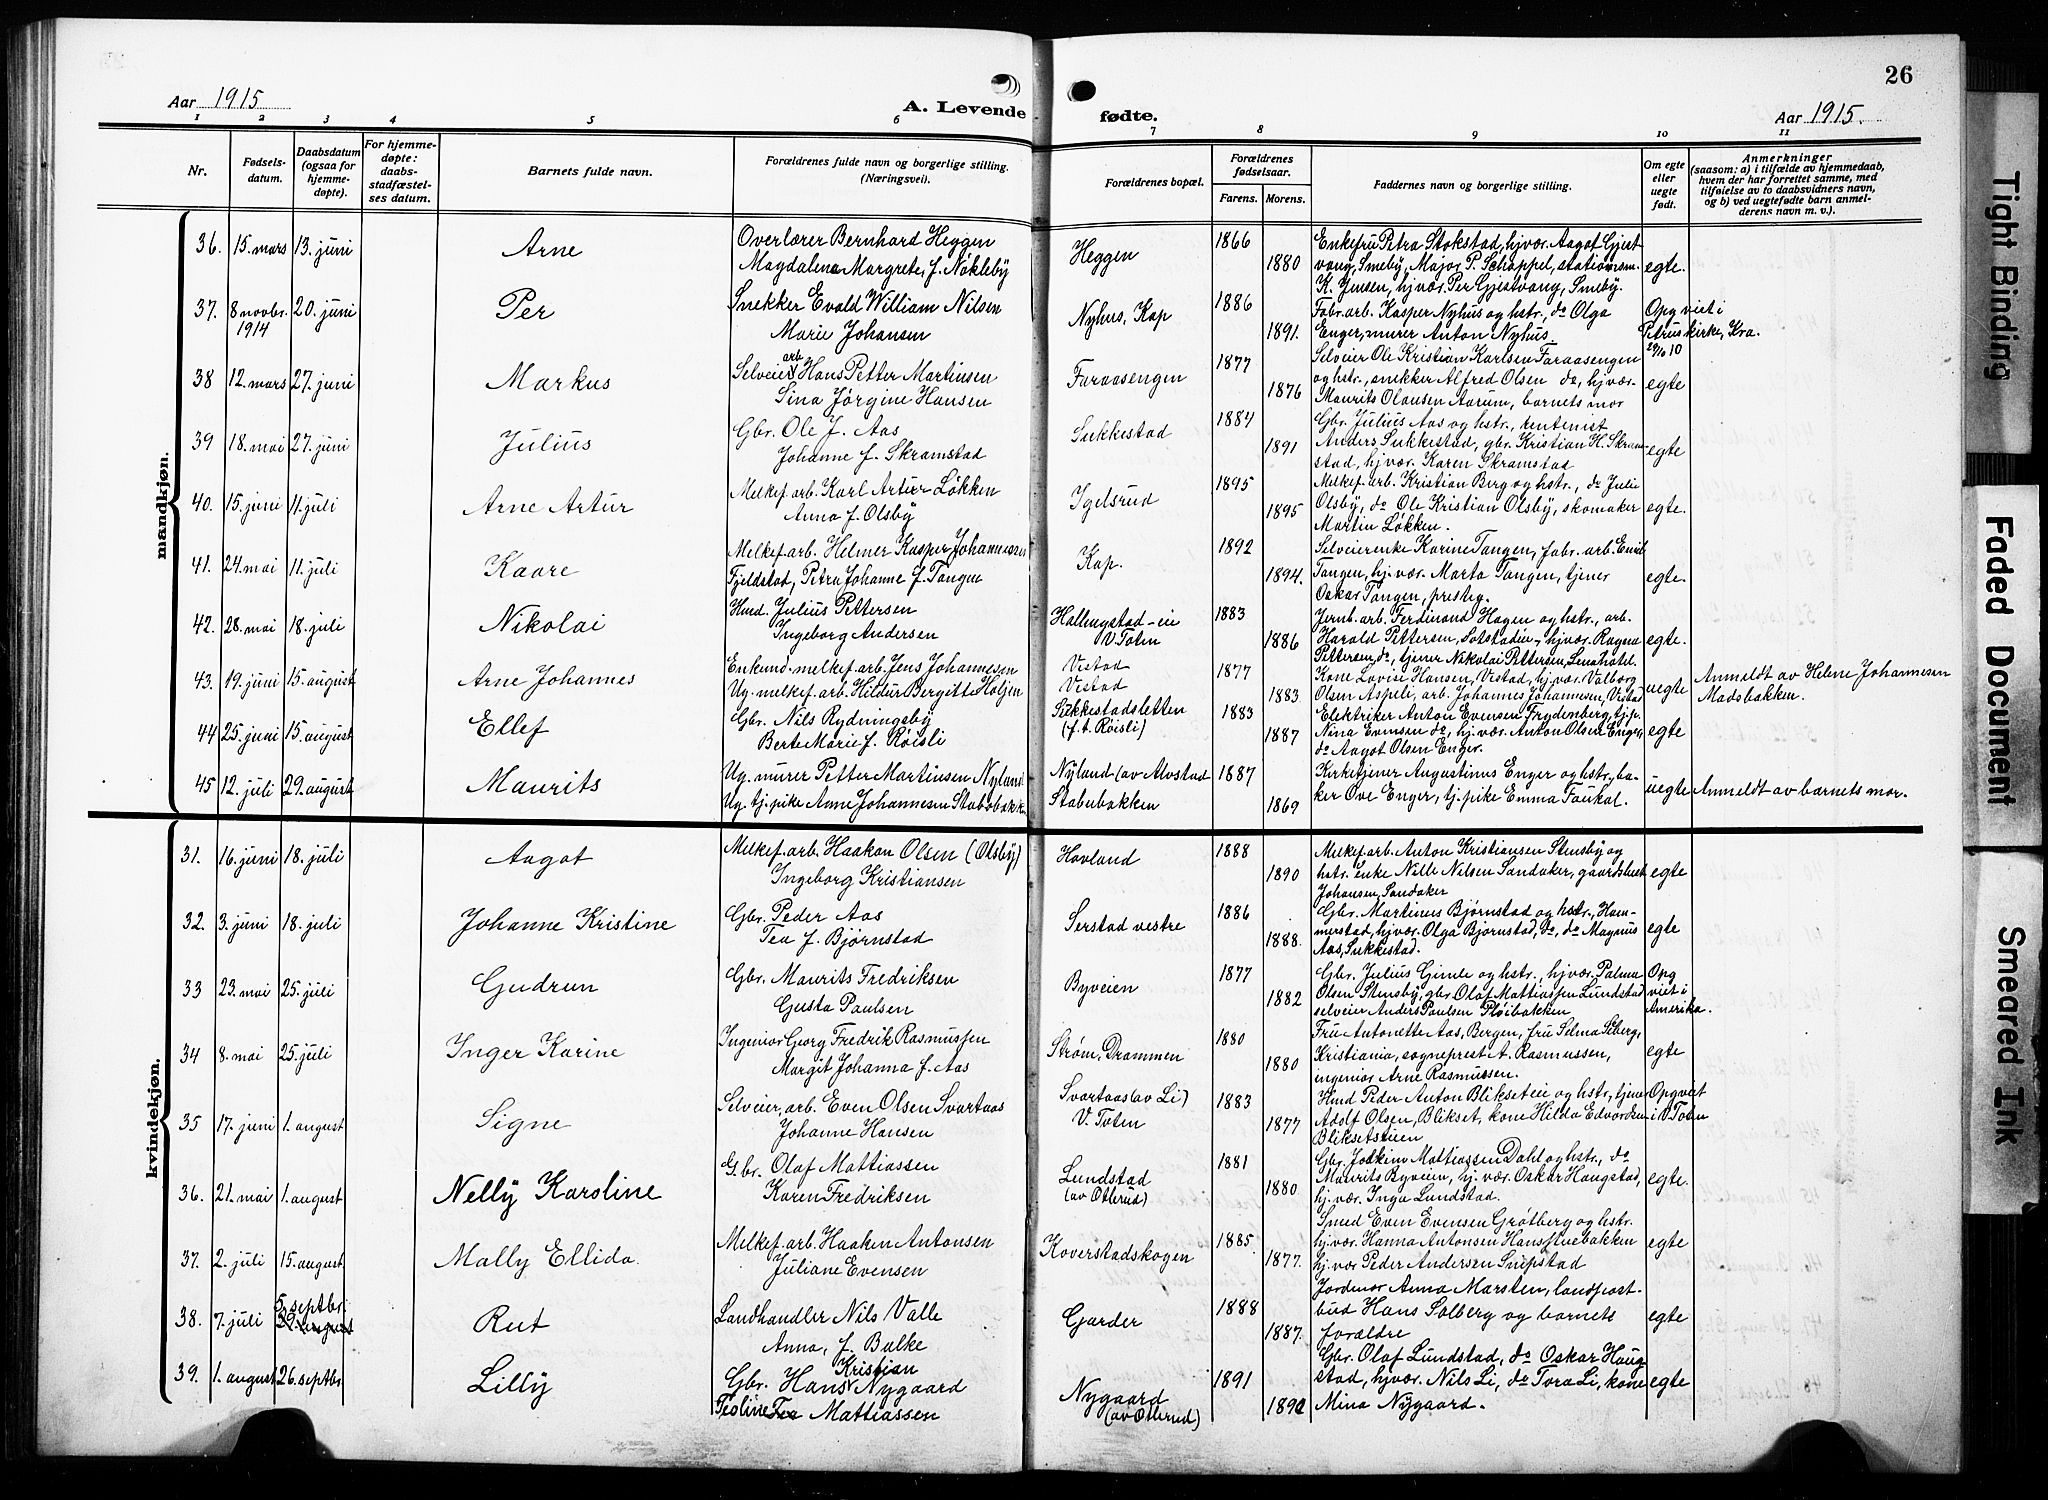 26
Aar 1915
A. Levende fødte.
Aar 1915.
1 2 3 4 5 6 7 8 9 10 11
Nr.
Fødsels-
datum.
Daabsdatum
(ogsaa for
hjemme-
døpte).
For hjemme-
døpte:
daabs-
stadfæstel-
ses datum.
Barnets fulde navn.
Forældrenes fulde navn og borgerlige stilling.
(Næringsvei).
Forældrenes bopæl.
Forældrenes
fødselsaar.
Farens. Morens.
Faddernes navn og borgerlige stilling.
Om egte
eller
uegte
født.
Anmerkninger
(saasom: a) i tilfælde av hjemmedaab,
hvem der har forrettet samme, med
tilføielse av to daabsvidners navn,
og b) ved uegtefødte barn anmel-
derens navn m. v.).
mandkjøn.
36. 15. mars 13. juni Arne
Overlærer Bernhard Heggen
Magdalena Margrete, f. Nökleby
Heggen 1866 1880
Enkefru Petra Stokstad, hjvær. Aagot Gjest-
vang, Smeby, Major P. Schappel, stationsm.
K. Jensen, hj.vær. Per Gjestvang, Smeby.
egte.
37. 8 novbr. 1914 20. juni Per
Snekker Evald William Nilsen
Marie Johansen
Nyhus, Kap 1886 1891.
Fabr. arb. Kasper Nyhus og hstr., do Olga
Enger, murer Anton Nyhus.
Opg viet i
Petrus kirke, Kra.
29/10 10
38 12. mars 27. juni Markus
Selveier arb Hans Petter Martinsen
Sina Jørgine Hansen
Faraasengen 1877 1876
Selveier Ole Kristian Karlsen Faraasengen
og hstr., snekker Alfred Olsen do, hj.vær.
Maurits Olausen Aarum, barnets mor
egte
39 18. mai 27. juni Julius
Gbr. Ole J. Aas
Johanne f. Skramstad
Sukkestad 1884 1891
Gbr. Julius Aas og hstr., rentenist
Anders Sukkestad, gbr. Kristian H. Skram-
stad, hjvær. Karen Skramstad
egte
40. 15. juni 11. juli Arne Artur
Melkef. arb. Karl Artur Løkken
Anna f. Olsby
Igelsrud 1895 1895
Melkef. arb. Kristian Berg og hstr., do Julie
Olsby, do Ole Kristian Olsby, skomaker
Martin Løkken.
egte.
41. 24. mai 11. juli Kaare
Melkef. arb. Helmer Kasper Johannessen
Fjeldstad, Petra Johanne f. Tangen
Kap. 1892 1894.
Selveierenke Karine Tangen, fabr. arb. Emil
Tangen, hj.vær. Marta Tangen, tjener
Oskar Tangen, presteg.
egte.
42. 28. mai 18. juli Nikolai
Hmd. Julius Pettersen
Ingeborg Andersen
Hallingstad-eie
V. Toten 1883 1886
Jernb. arb. Ferdinand Hagen og hstr., arb.
Harald Pettersen, Sotstadeie, hjvær. Ragna
Pettersen, do, tjener Nikolai Pettersen, Lenahotel.
egte.
43. 19. juni 15. august Arne Johannes
Enkemd. melkef. arb. Jens Johannesen
Ug. melkef. arb. Hildur Bergitte Holjen
Vestad
Vestad 1877 1883
Kone Lovise Hansen, Vestad, hj.vær. Valborg
Olsen Aspeli, arb. Johannes Johannesen, Vestad
uegte
Anmeldt av Helene Johannesen
Madsbakken.
44 25. juni 15. august Ellef
Gbr. Nils Rydningsby
Berte Marie f. Röisli
Sukkestadsletten
(f. t. Röisli) 1883 1887
Elektriker Anton Evensen Frydenberg, tj.p.
Nina Evensen do, hj.vær. Anton Olsen Enger,
do Aagot Olsen Enger.
egte
45 12. juli 29. august Maurits
Ug. murer Petter Martinsen Nyland
Ug. tj. pike Anne Johannesen Stabobakk.
Nyland (av Alvstad
Stabubakken 1887 1869
Kirketjener Augustinus Enger og hstr., ba-
ker Ove Enger, tj. pike Emma Faukal.
uegte Anmeldt av barnets mor.
kvindekjøn.
31. 16. juni 18. juli Aagot
Melkef. arb. Haakon Olsen (Olsby)
Ingeborg Kristiansen
Hovland 1888 1890
Melkef. arb. Anton Kristiansen Stensby og
hstr. enke Nille Nilsen Sandaker, gaardsbest.
Johansen, Sandaker
egte
32. 3. juni 18. juli Johanne Kristine
Gbr. Peder Aas
Tea f. Bjørnstad
Serstad vestre 1886 1888.
Gbr. Martinus Bjørnstad og hstr., Ham-
merstad, hj.vær. Olga Bjørnstad, do, do Magnus
Aas, Sukkestad.
egte
33 23. mai 25. juli Gudrun
Gbr. Maurits Fredriksen
Gusta Paulsen
Byveien 1877 1882
Gbr. Julius Gimle og hstr., hj.vær. Palma
Olsen Stensby, gbr Olaf Mattiassen Lundstad
selveier Anders Paulsen Pløibakken
Opg
viet i
Amerika.
34 8. mai 25. juli Inger Karine
Ingeniør Georg Fredrik Rasmussen
Margit Johanna f. Aas
Strøm, Drammen 1880 1880
Fru Antonette Aas, Bergen, fru Selma Seberg,
Kristiania, sogneprest A. Rasmussen,
ingeniør Arne Rasmussen.
egte
35 17. juni 1. august Signe
Selveier, arb. Even Olsen Svartaas
Johanne Hansen
Svartaas (av Li)
V. Toten 1883 1877
Hmd Peder Anton Blikseteie og hstr, tjener
Adolf Olsen, Blikset, kone Hilda Edvardsen
Bliksetstuen
Opg viet
i V. Toten
36. 21. mai 1. august Nelly Karoline
Gbr. Olaf Mattiassen
Karen Fredriksen
Lundstad
(av Otterud) 1881 1880
Gbr. Joakim Mattiassen Dahl og hstr., do
Maurits Byveien, hj.vær. Oskar Haugstad,
hj.vær. Inga Lundstad.
egte.
37. 2. juli 15. august Mally Ellida.
Melkef. arb. Haaken Antonsen
Juliane Evensen
Koverstadskogen 1885. 1877.
Smed Even Evensen Grøtberg og hstr.
hj.vær. Hanna Antonsen Hansstuebakken
hj.vær Peder Andersen Snipstad
egte
38. 7. juli 5. septbr. 29. august Rut
Landhandler Nils Valle
Anna, f. Balke
Gjarder 1888 1887.
Jordmor Anna Marsten, landpost-
bud Hans Solberg og barnets
forældre
egte
39. 1. august 26. septbr. Lilly
Gbr. Hans Kristian Nygaard
Teoline Tea Mattiassen
Nygaard
(av Otterud) 1891 1892
Gbr. Olaf Lundstad, do Oskar Haug-
stad, hjvær. Nils Li, do Tora Li, kone
Mina Nygaard.
egte
Tight Binding
Faded Document
Smeared Ink